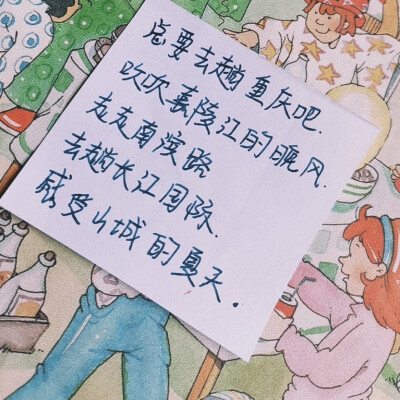 总要去趟重庆吧.
吹吹嘉陵江的晚风.
走走南滨路
去趟长江国际.
感受山城的夏天.